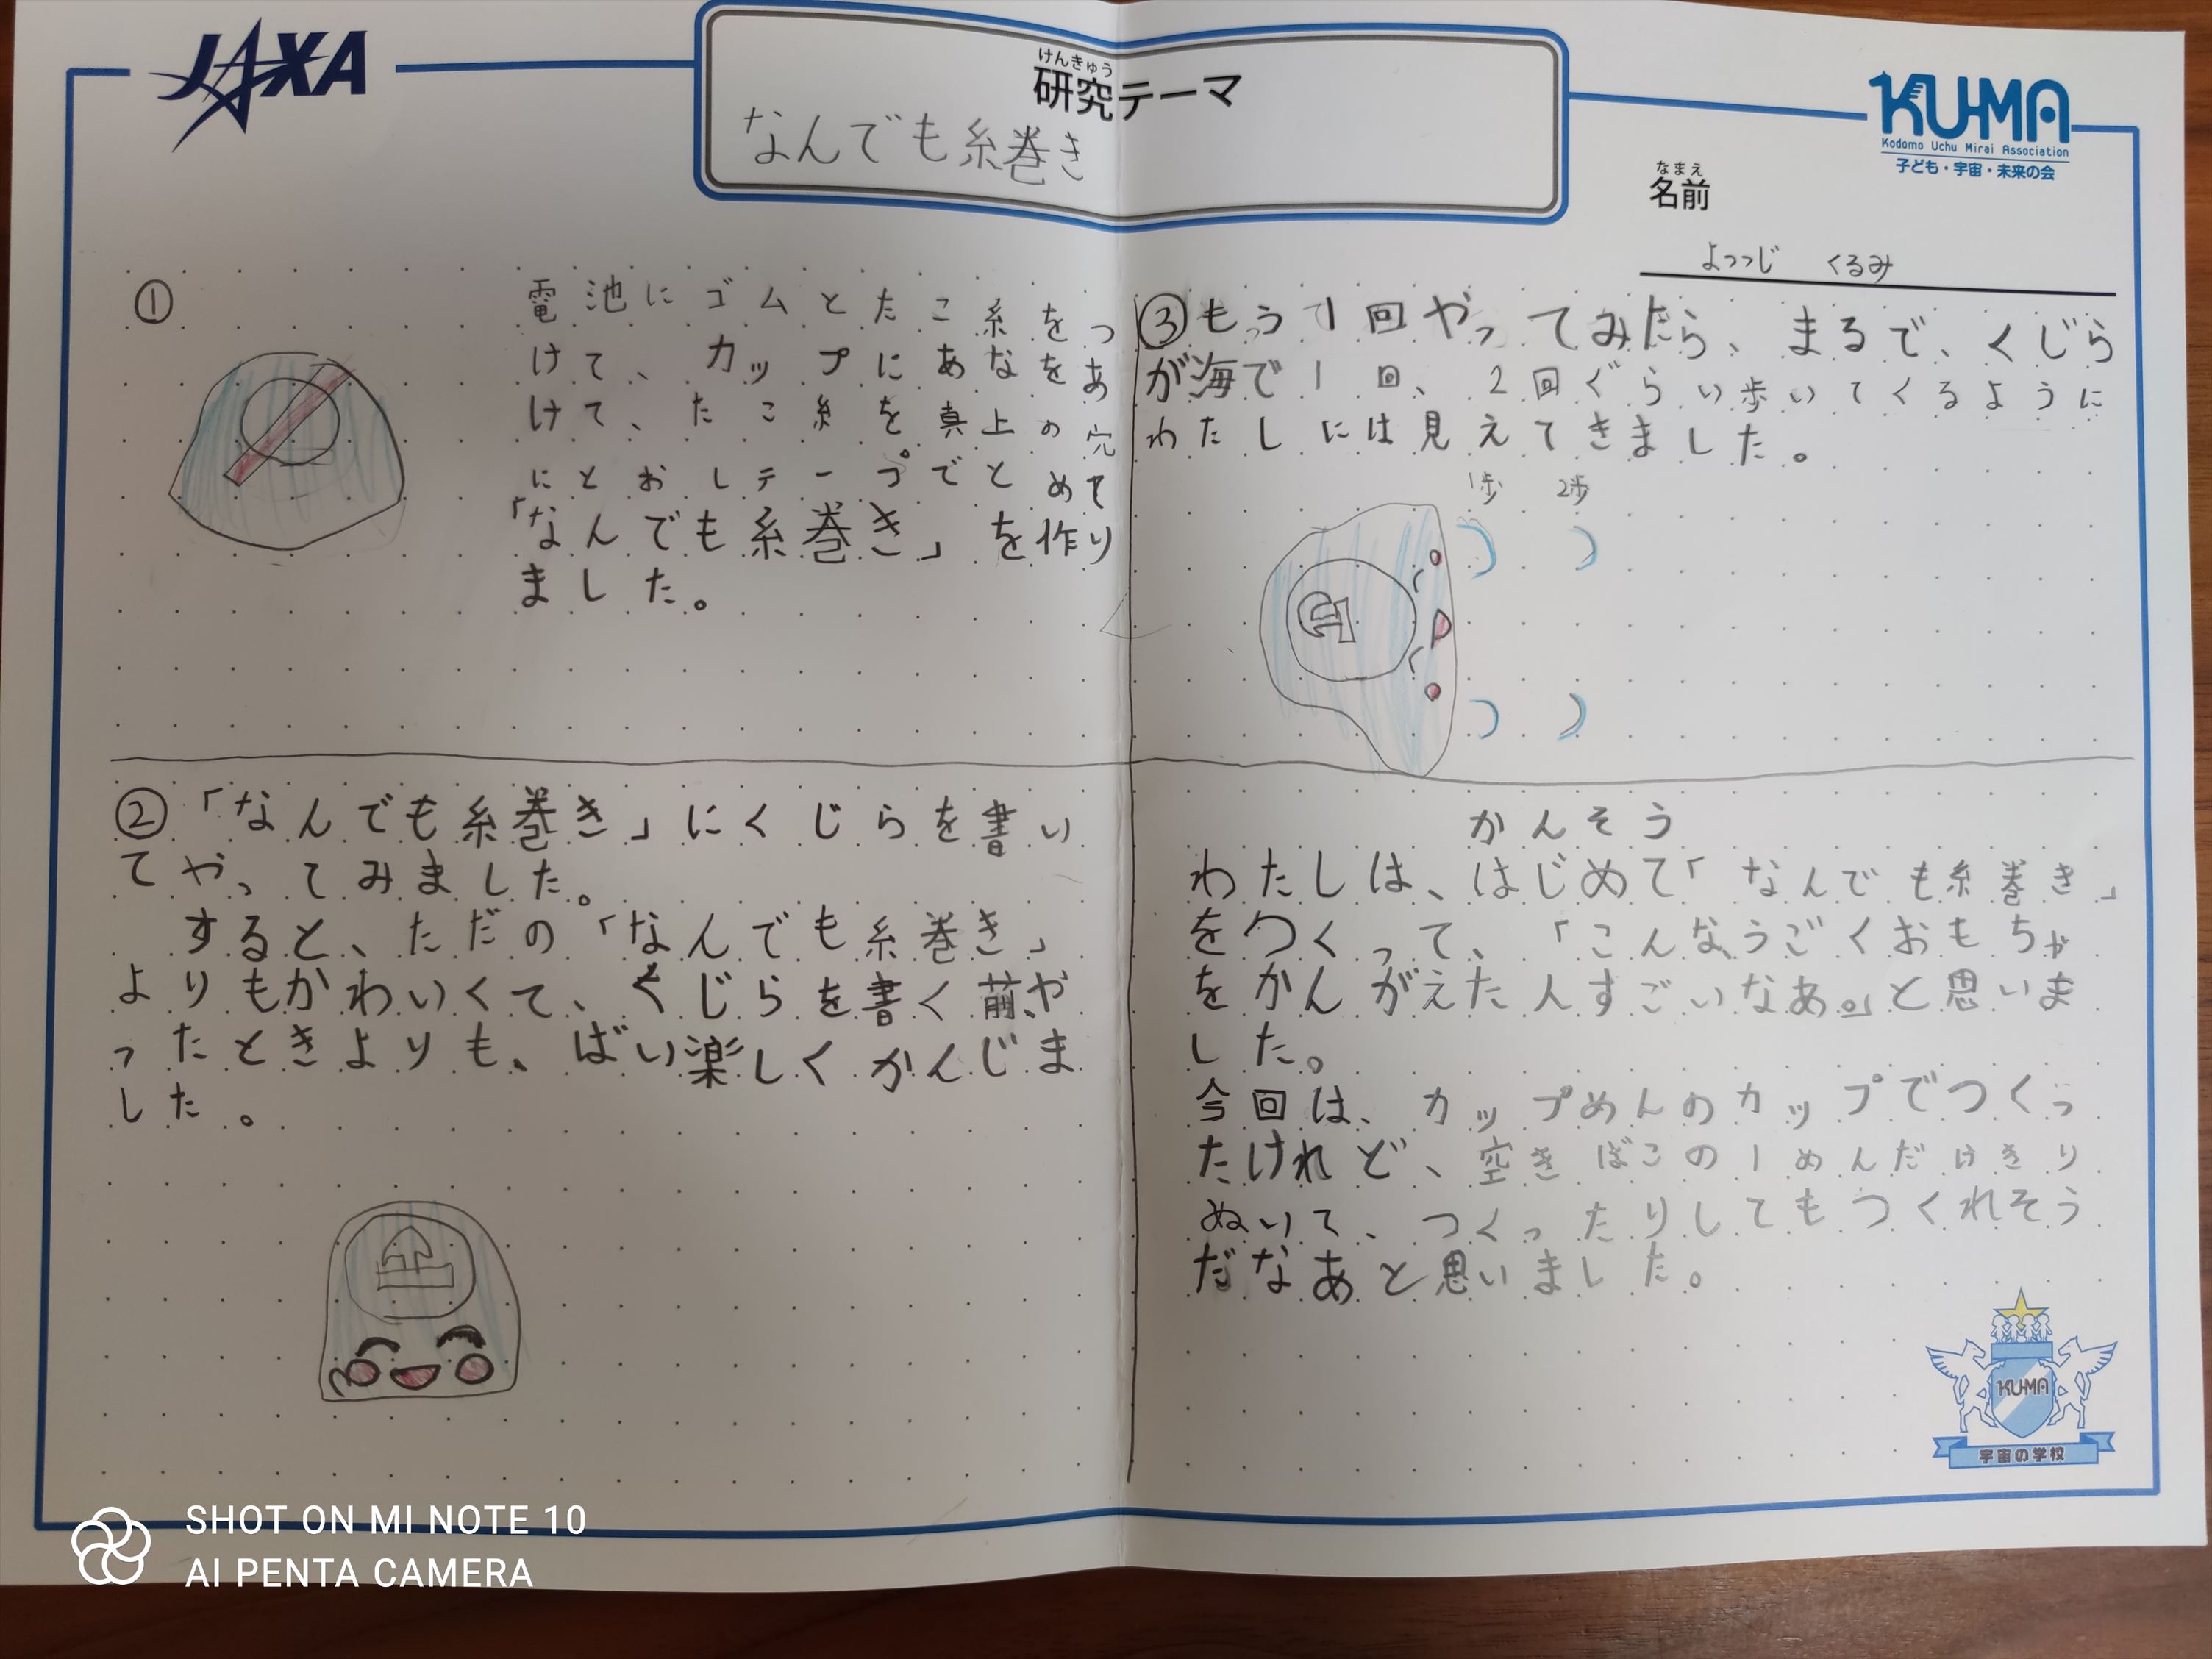 JAXA
けんきゅう
研究テーマ
なんでも糸巻き
KU-MA
Kodomo Uchu Mirai Association
子ども・宇宙・未来の会
なまえ
名前
よっつじ くるみ
①
電池にゴムとたこ糸をつ
けて、カップにあなをあ
けて、たこ糸を真上の穴
にとおしテープでとめて
「なんでも糸巻き」を作り
ました。
②「なんでも糸巻き」にくじらを書い
てやってみました。
すると、ただの「なんでも糸巻き」
よりもかわいくて、くじらを書く前や
ったときよりも、ばい楽しくかんじま
した。
③もう1回やってみたら、まるで、くじら
が海で1回、2回ぐらい歩いてくるように
わたしには見えてきました。
1歩 2歩
かんそう
わたしは、はじめて「なんでも糸巻き」
をつくって、「こんな、うごくおもちゃ
をかんがえた人すごいなあ。」と思いま
した。
今回は、カップめんのカップでつくっ
たけれど、空きばこの1めんだけきり
ぬいて、つくったりしてもつくれそう
だなあと思いました。
KU-MA
宇宙の学校
SHOT ON MI NOTE 10
AI PENTA CAMERA